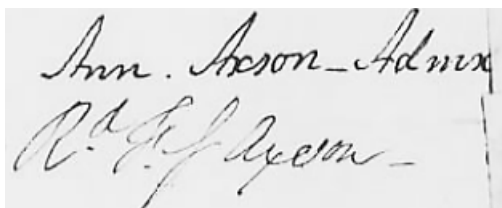 Ann. Axson - Admx
Rd. F. J Axson -